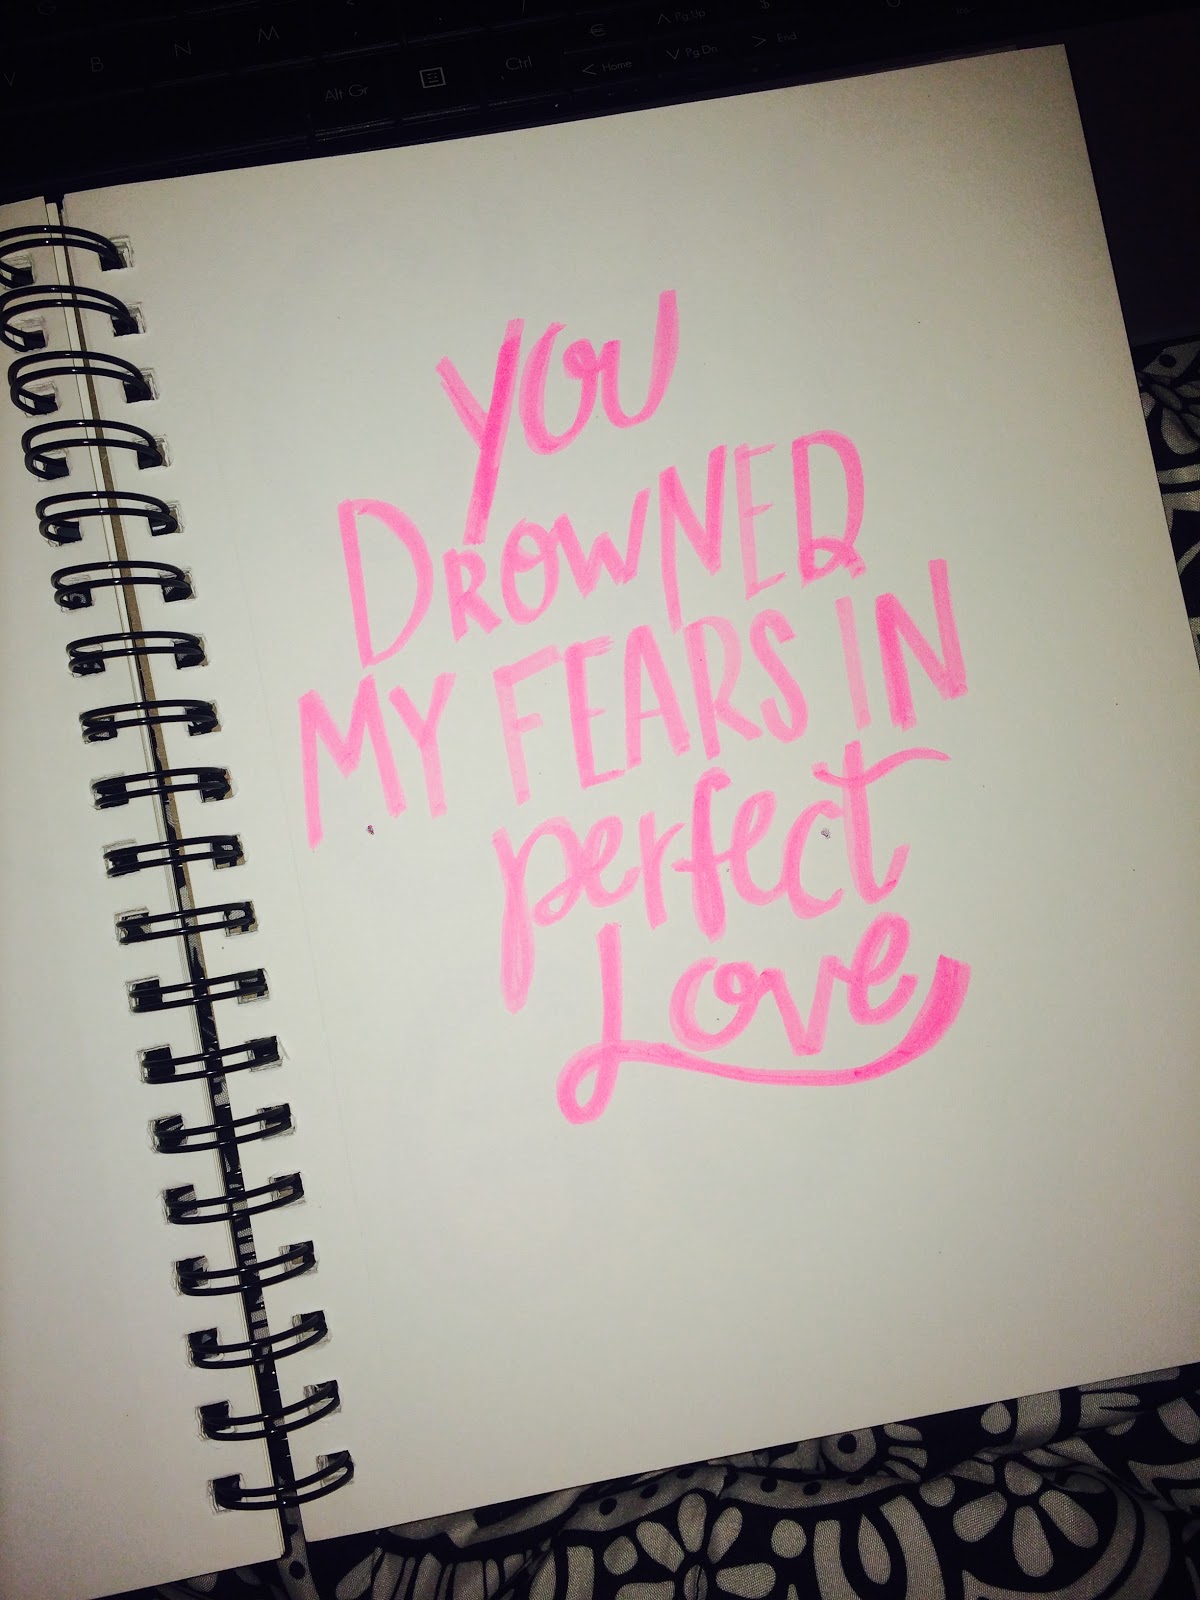 G
V B N M < /
Alt Gr
Ctrl
€
Pg Up
< Home
Pg Dn
> End
$
Ins
YOU
DROWNED
MY FEARS IN
perfect
Love